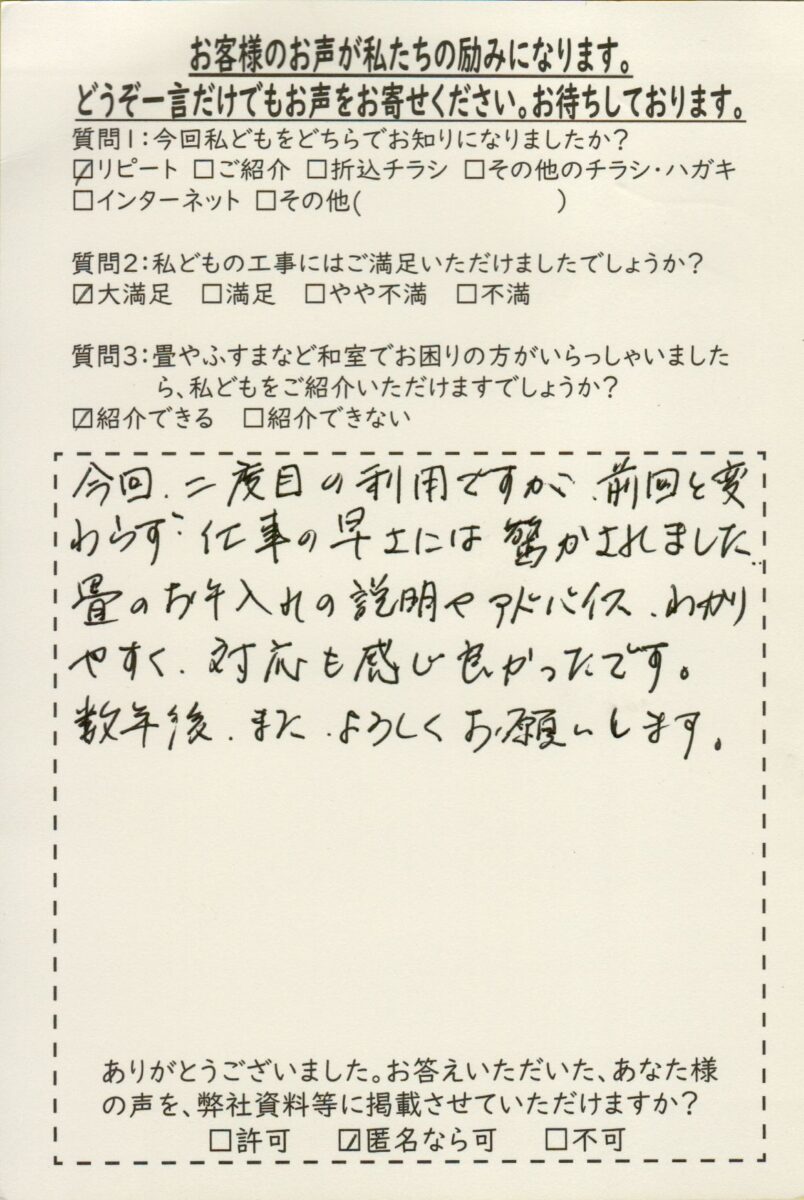 お客様のお声が私たちの励みになります。
どうぞ一言だけでもお声をお寄せください。お待ちしております。
質問1:今回私どもをどちらでお知りになりましたか?
☑リピート □ご紹介 □折込チラシ □その他のチラシ・ハガキ
□インターネット □その他( )
質問2:私どもの工事にはご満足いただけましたでしょうか?
☑大満足 □満足 □やや不満 □不満
質問3:畳やふすまなど和室でお困りの方がいらっしゃいました
ら、私どもをご紹介いただけますでしょうか?
☑紹介できる □紹介できない
今回、二度目の利用ですが、前回と変
わらず、仕事の早さには驚かされました。
畳のお手入れの説明やアドバイス、わかり
やすく、対応も感じ良かったです。
数年後、また、よろしくお願いします。
ありがとうございました。お答えいただいた、あなた様
の声を、弊社資料等に掲載させていただけますか?
□許可 ☑匿名なら可 □不可